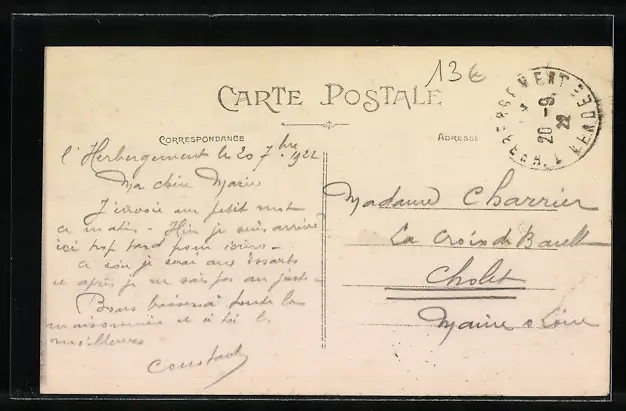 13€
CARTE POSTALE
CORRESPONDANCE
ADRESSE
L'HERBERGEMENT VENDÉE
20-9 22
l'Herbergement le 20 7.bre 1922
Ma chère Marie
J'envoie un petit mot
ce matin - Hier je suis arrivé
ici trop tard pour écrire -
ce soir je serai aux Essarts
et après je ne sais pas au juste -
Bons baisers à toute la
maisonnée et à toi les
meilleurs
Constant
Madame Charrier
La Croix de Bault
Cholet
Maine & Loire